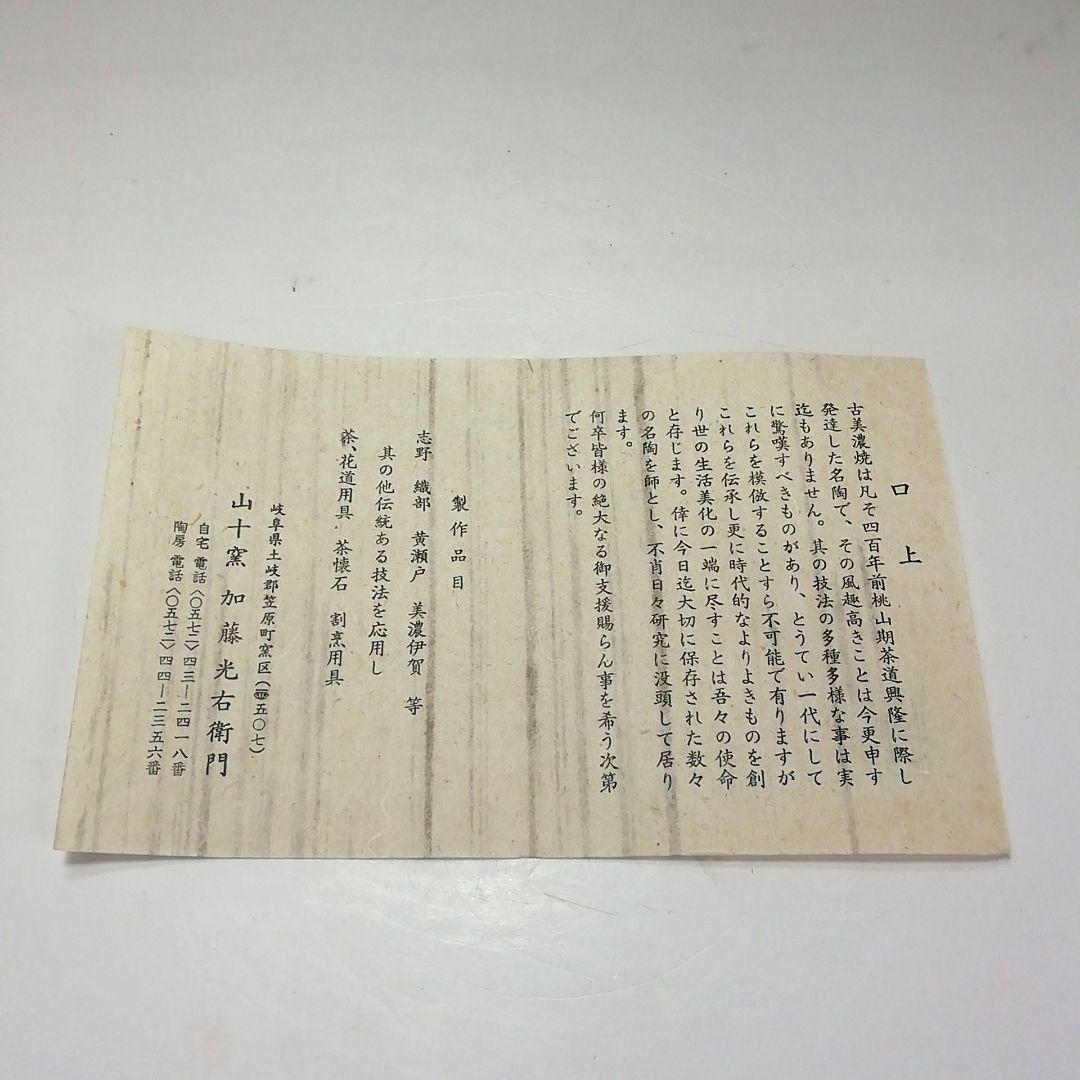 口上
古美濃焼は凡そ四百年前桃山期茶道興隆に際し
発達した名陶で、その風趣高きことは今更申す
迄もありません。其の技法の多種多様な事は実
に驚嘆すべきものがあり、とうてい一代にして
これらを模倣することすら不可能で有りますが
これらを伝承し更に時代的なよりよきものを創
り世の生活美化の一端に尽すことは吾々の使命
と存じます。倖に今日迄大切に保存された数々
の名陶を師とし、不肖日々研究に没頭して居り
ます。
何卒皆様の絶大なる御支援賜らん事を希う次第
でございます。
製作品目
志野 織部 黄瀬戸 美濃伊賀 等
其の他伝統ある技法を応用し
茶、花道用具 茶懐石 割烹用具
岐阜県土岐郡笠原町窯区(五〇七)
山十窯 加藤光右衛門
自宅 電話〈〇五七二〉四三―二四一八番
陶房 電話〈〇五七二〉四四―二三五六番